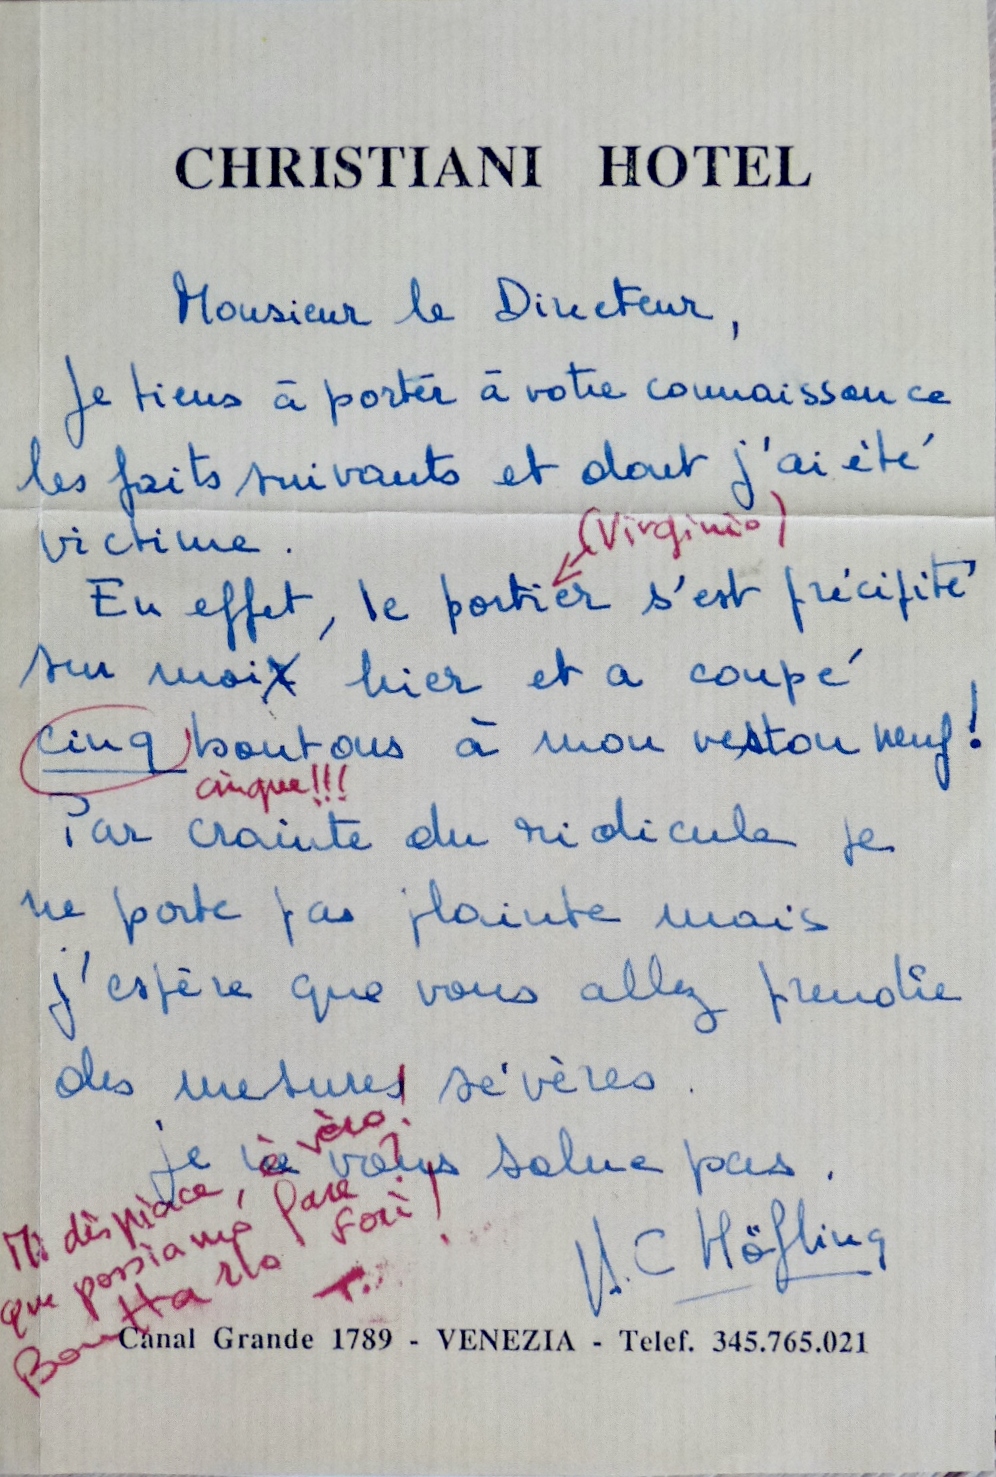 CHRISTIANI HOTEL
Monsieur le Directeur,
Je tiens à porter à votre connaissance
les faits suivants et dont j'ai été
victime.
(Virginio)
En effet, le portier s'est précipité
sur moi hier et a coupé
cinq boutons à mon veston neuf!
cinque!!!
Par crainte du ridicule je
ne porte pas plainte mais
j'espère que vous allez prendre
des mesures sévères.
je ne vous salue pas.
Mi dèspiace, è vèro!
que possiamo fare?
Bouttarlo forì!
V. C Höfling
Canal Grande 1789 - VENEZIA - Telef. 345.765.021